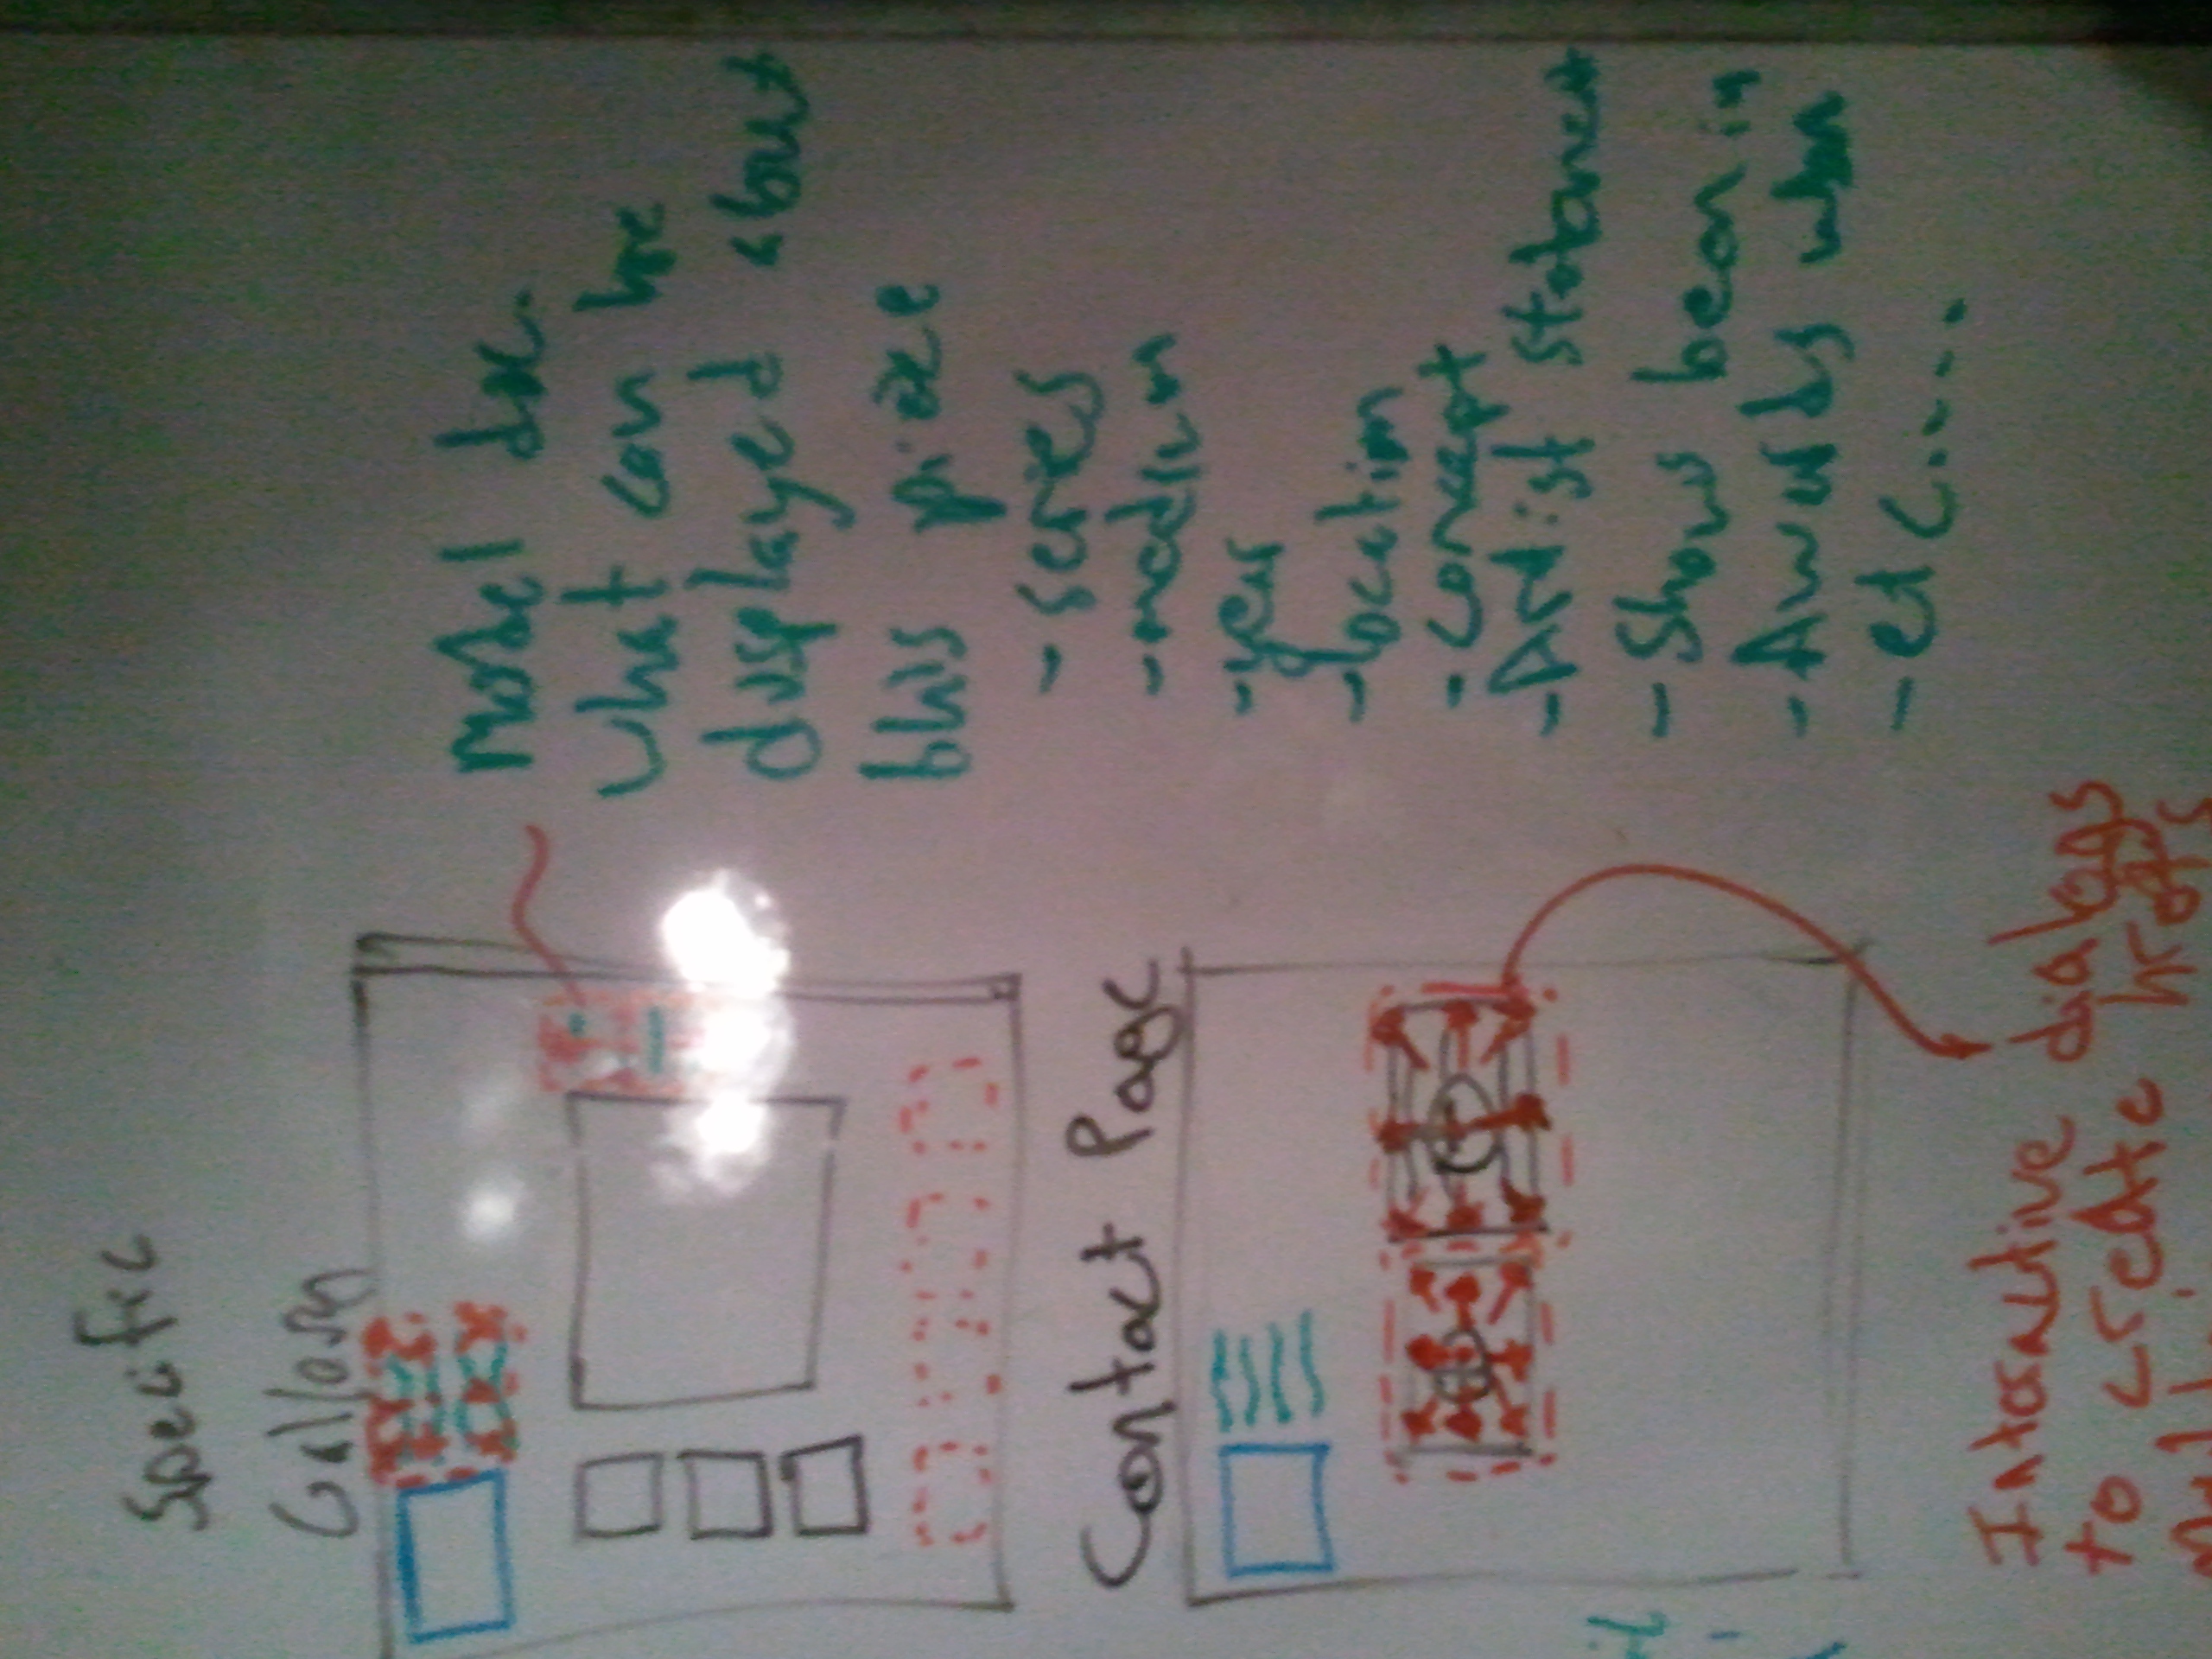 Specific
Gallery
Model doc.
what can be
displayed about
this piece
- series
- medium
- year
- location
- concept
- Artist statement
- Shows been in
- Awards won
- etc.....
Contact Page
Interactive dialogs
to create hrefs